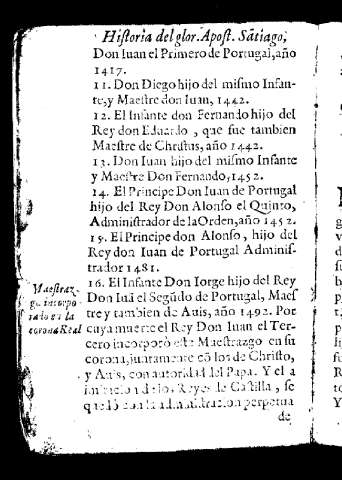 Historia del glor. Apost. Sãtiago,
Don Iuan el Primero de Portugal, año
1417.
11. Don Diego hijo del mismo Infan-
te, y Maestre don Iuan, 1442.
12. El Infante don Fernando hijo del
Rey don Eduardo, que fue tambien
Maestre de Christus, año 1442.
13. Don Iuan hijo del mismo Infante
y Maestre Don Fernando, 1452.
14. El Principe Don Iuan de Portugal
hijo del Rey Don Alonso el Quinto,
Administrador de la Orden, año 1452.
15. El Principe don Alonso, hijo del
Rey don Iuan de Portugal Adminis-
trador 1481.
16. El Infante Don Iorge hijo del Rey
Don Iuã el Segũdo de Portugal, Maes
tre y tambien de Auis, año 1492. Por
cuya muerte el Rey Don Iuan el Ter-
cero incorporò este Maestrazgo en su
corona, juntamente cõ los de Christo,
y Auis, con autoridad del Papa. Y el a
de los Reyes de Castilla, se
quedò con la administracion perpetua
de
Maestraz-
go incorpo
rado en la
corona Real